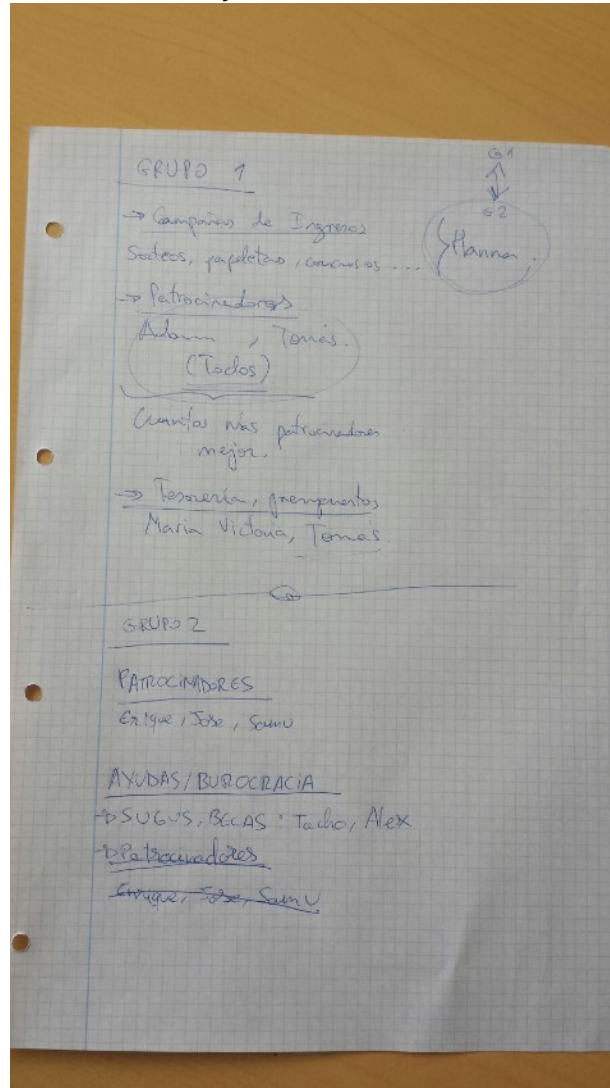 GRUPO 1
→ Campañas de Ingresos
Sorteos, papeletas, concursos ...
G1
G2
Hanna.
→ Patrocinadores
Adam, Tomás.
(Todos)
Cuantos más patrocinadores
mejor.
→ Tesorería, presupuestos
Maria Victoria, Tomás.
GRUPO 2
PATROCINADORES
Enrique, Jose, Samu
AYUDAS/BUROCRACIA
→ SUGUS, BECAS: Tacho, Alex
→ Patrocinadores
Enrique, Jose, Samu